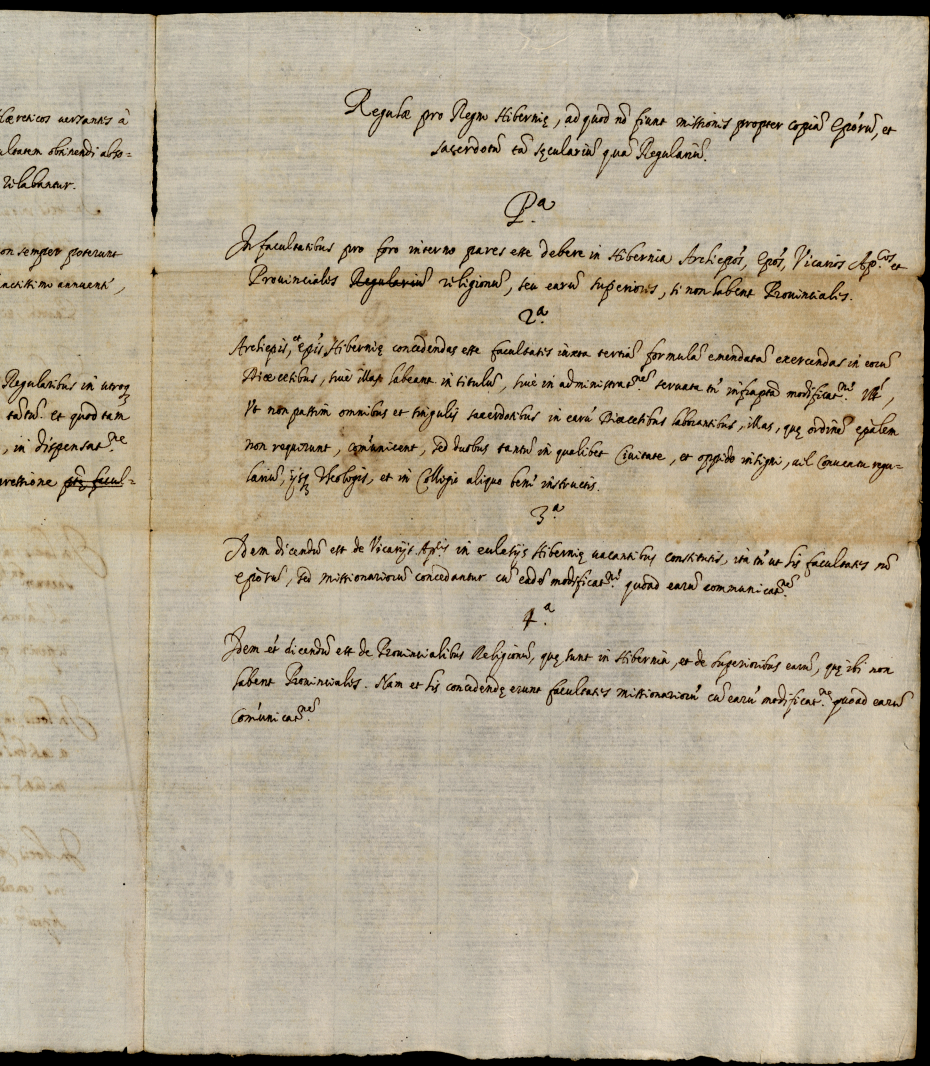 hæreticos uersantis à
ultatem obtinendi abso=
relabantur.
on semper poterunt
annuenti,
Regularibus in utroq₃
tantũ. et quod tam
, in dispensat.ne
ressione
Regulæ pro Regno Hibernię, ad quod nõ fiunt missiones propter copiã Epõrũ, et
sacerdotũ tã sęculariũ quã Regulariũ.
P.a
In facultatibus pro foro interno pares esse debere in Hibernia Archiepõs, Epõs, Vicarios Ap.cos et
Prouinciales Regulariũ religionũ, seu earũ superiores, si non habent Prouinciales.
2.a
Archiepis, et epis Hibernię concedendas esse facultates iuxta tertiã formulã emendatã exercendas in eorũ
Diœcesibus, siuè illas habeant in titulũ, siuè in administrat.ne seruata tñ infraptã modificat.ne
Vt non passim omnibus et singulis sacerdotibus in earũ Diœcesibus laborantibus, illas, quę ordinẽ epalem
non requirunt, cõmunicent, sed duobus tantũ in qualibet Ciuitate, et oppido insigni, uel Conuentu regu=
lariũ, ijsq₃ Theologis, et in Collegio aliquo benè instructis.
3.a
Idem dicendũ est de Vicarijs Ap.cis in ecclesijs Hibernię uacantibus constitutis, ita tñ ut his facultates nõ
Epõrũ, sed missionariorũ concedantur cũ eadẽ modificat.ne quoad earũ communicat.nẽ
4.a
Idem et dicendũ est de Prouincialibus Religionũ, quę sunt in Hibernia, et de superioribus earũ, quę ibi non
habent Prouinciales. Nam et his concedendę erunt facultates missionariorũ cũ earũ modificat.ne quoad earũ
Cõmunicat.nẽ